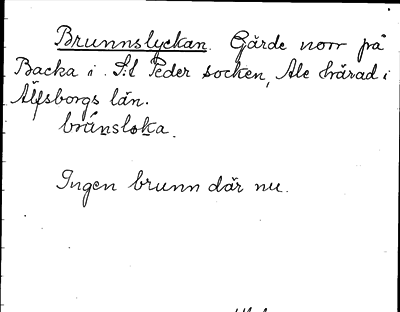 Brunnslyckan. Gärde norr på
Backa i S:t Peder socken, Ale härad i
Älfsborgs län.
brúnsloka.
Ingen brunn där nu.